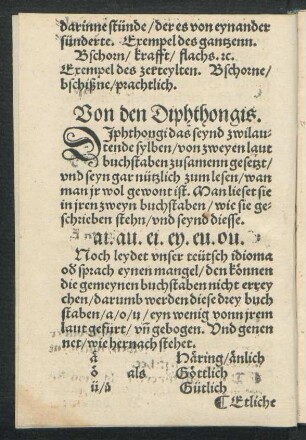 darinne stünde/der es von eynander
sünderte. Exempel des gantzenn.
Bschorn/krafft/flachs.ꝛc.
Exempel des zerteylten. Bschorne/
bschißne/prachtlich.
Von den Diphthongis.
DJphthongi das seynd zwilau-
tende sylben/von zweyen laut
buchstaben zusamenn gesetzt/
vnd seyn gar nützlich zum lesen/wan
man jr wol gewont ist. Man lieset sie
in jren zweyn buchstaben/wie sie ge-
schrieben stehn/vnd seynd diesse.
ai. au. ei. ey. eu. ou.
Noch leydet vnser teütsch idioma
oď sprach eynen mangel/den können
die gemeynen buchstaben nicht errey
chen/darumb werden diese drey buch
staben/a/o/u/eyn wenig vonn jrem
laut gefürt/vñ gebogen. Vnd genen
net/wie hernach stehet.
aͤ Häring/änlich
oͤ als Göttlich
ü/uͤ Gütlich
¶ Etliche